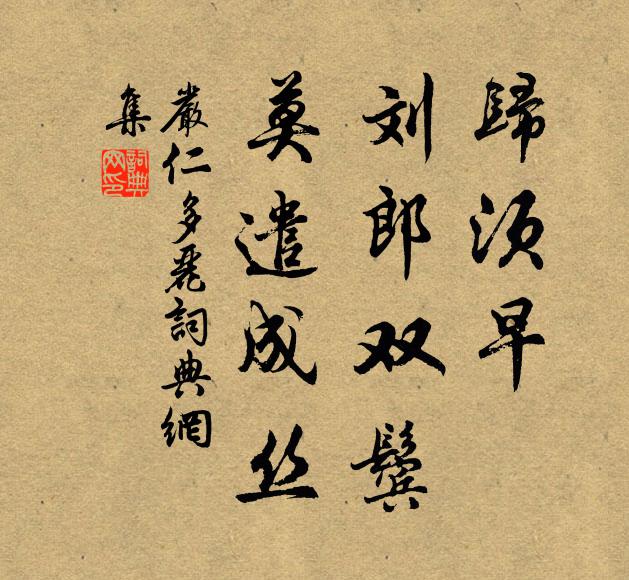 歸须早
刘郎双鬓
莫遣成丝
嚴仁多麗詞典網
集
詞典網印